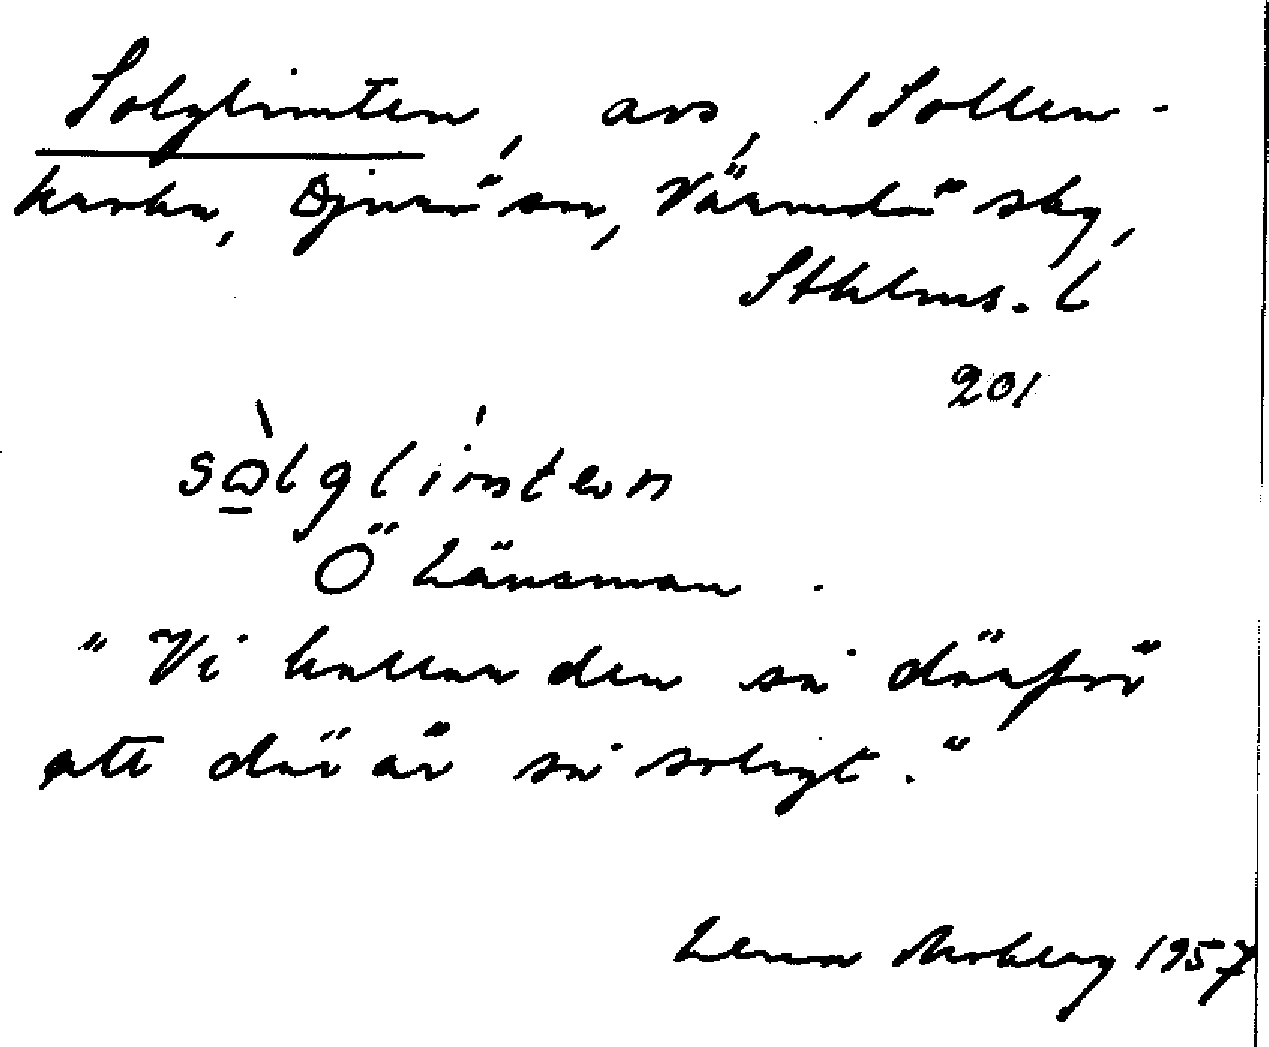 Solglimten, avs, 1 Sollen-
kroka, Djurö sn, Värmdö skg,
Sthlms. l
201
sòlglimten
Ö Länsman.
"Vi kallar den så därför
att där är så soligt."
Lena Moberg 1957